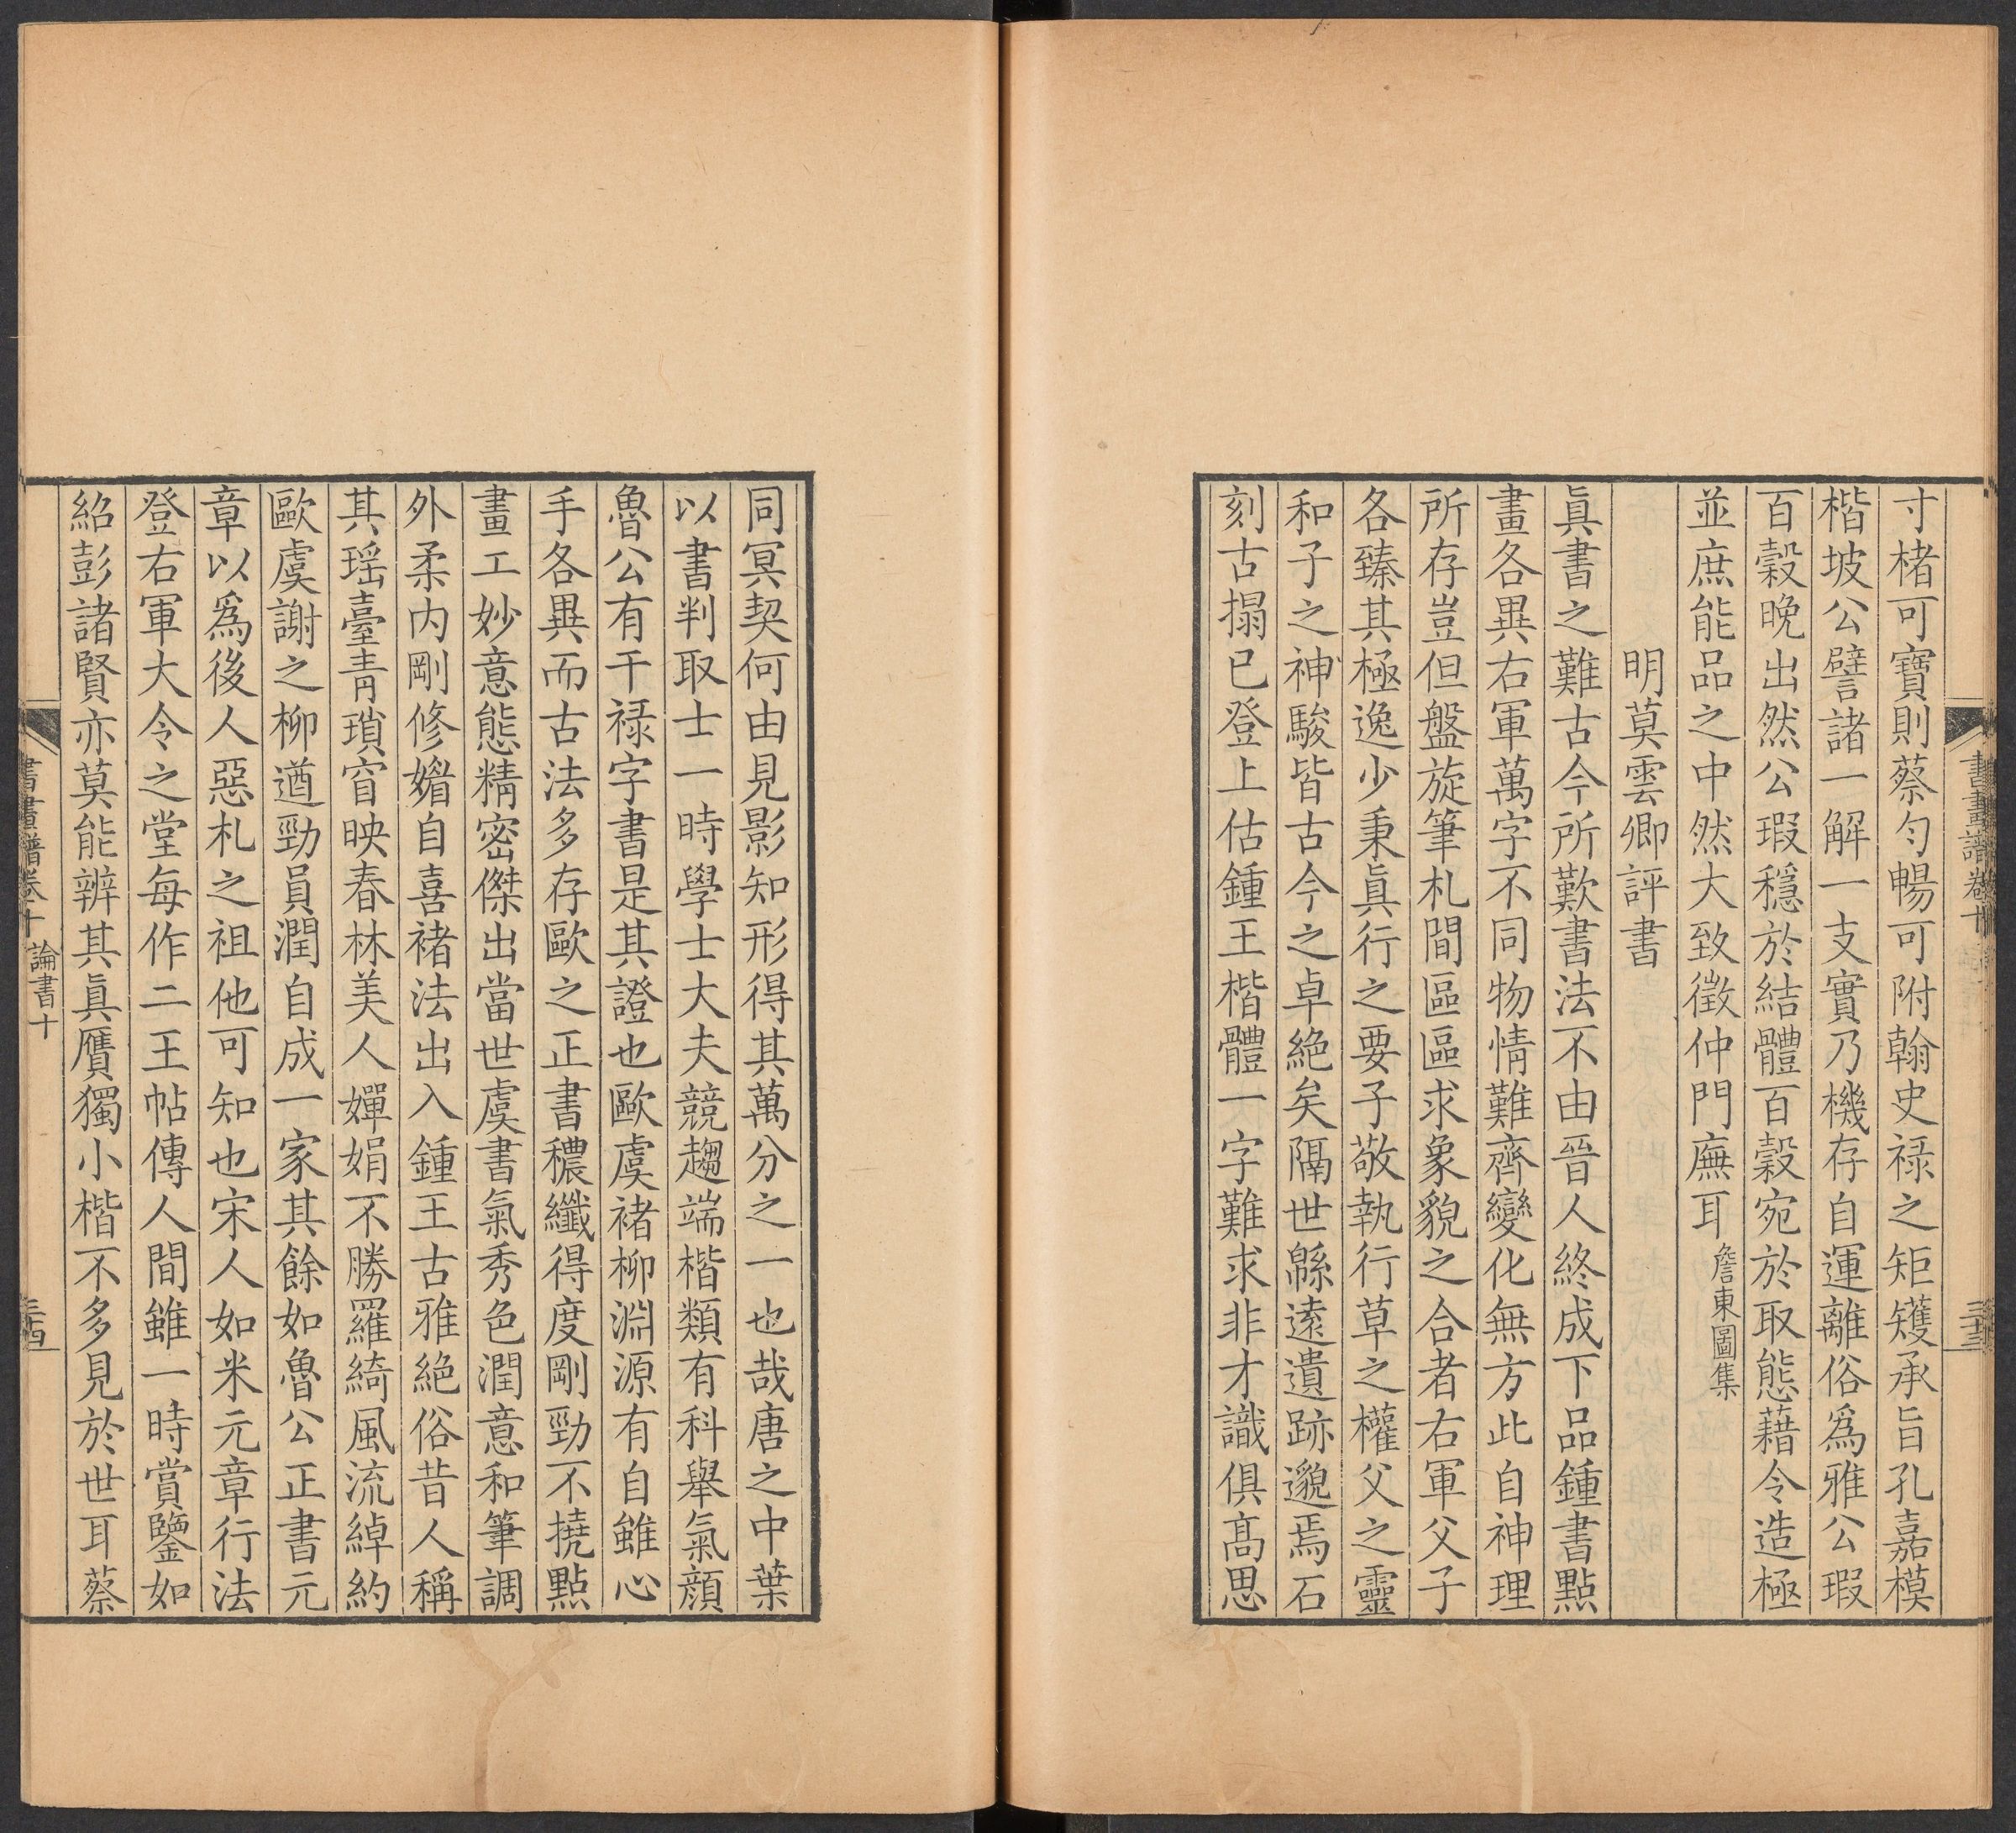 寸楮可寶則蔡勻暢可附翰史祿之矩矱承旨孔嘉模
楷坡公譬諸一解一支實乃機存自運離俗爲雅公瑕
百穀晚出然公瑕穩於結體百穀宛於取態藉令造極
並庶能品之中然大致徵仲門廡耳詹東圖集
明莫雲卿評書
眞書之難古今所歎書法不由晉人終成下品鍾書點
畫各異右軍萬字不同物情難齊變化無方此自神理
所存豈但盤旋筆札間區區求象貌之合者右軍父子
各臻其極逸少秉眞行之要子敬執行草之權父之靈
和子之神駿皆古今之卓絶矣隔世緜遠遺跡邈焉石
刻古搨已登上估鍾王楷體一字難求非才識俱高思
書畫譜卷十
三十三
同冥契何由見影知形得其萬分之一也哉唐之中葉
以書判取士一時學士大夫競趨端楷類有科舉氣顏
魯公有干祿字書是其證也歐虞褚柳淵源有自雖心
手各異而古法多存歐之正書穠纖得度剛勁不撓點
畫工妙意態精密傑出當世虞書氣秀色潤意和筆調
外柔内剛修媚自喜褚法出入鍾王古雅絶俗昔人稱
其瑶臺青瑣窅映春林美人嬋娟不勝羅綺風流綽約
歐虞謝之柳遒勁員潤自成一家其餘如魯公正書元
章以爲後人惡札之祖他可知也宋人如米元章行法
登右軍大令之堂每作二王帖傳人間雖一時賞鑒如
紹彭諸賢亦莫能辨其眞贋獨小楷不多見於世耳蔡
書畫譜卷十 論書十
三十四